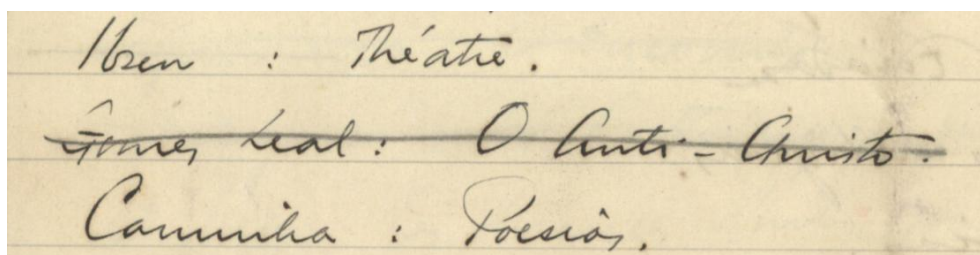 Ibsen : Théatre.
Gomes Leal: O Anti-Christo.
Caminha : Poesias.